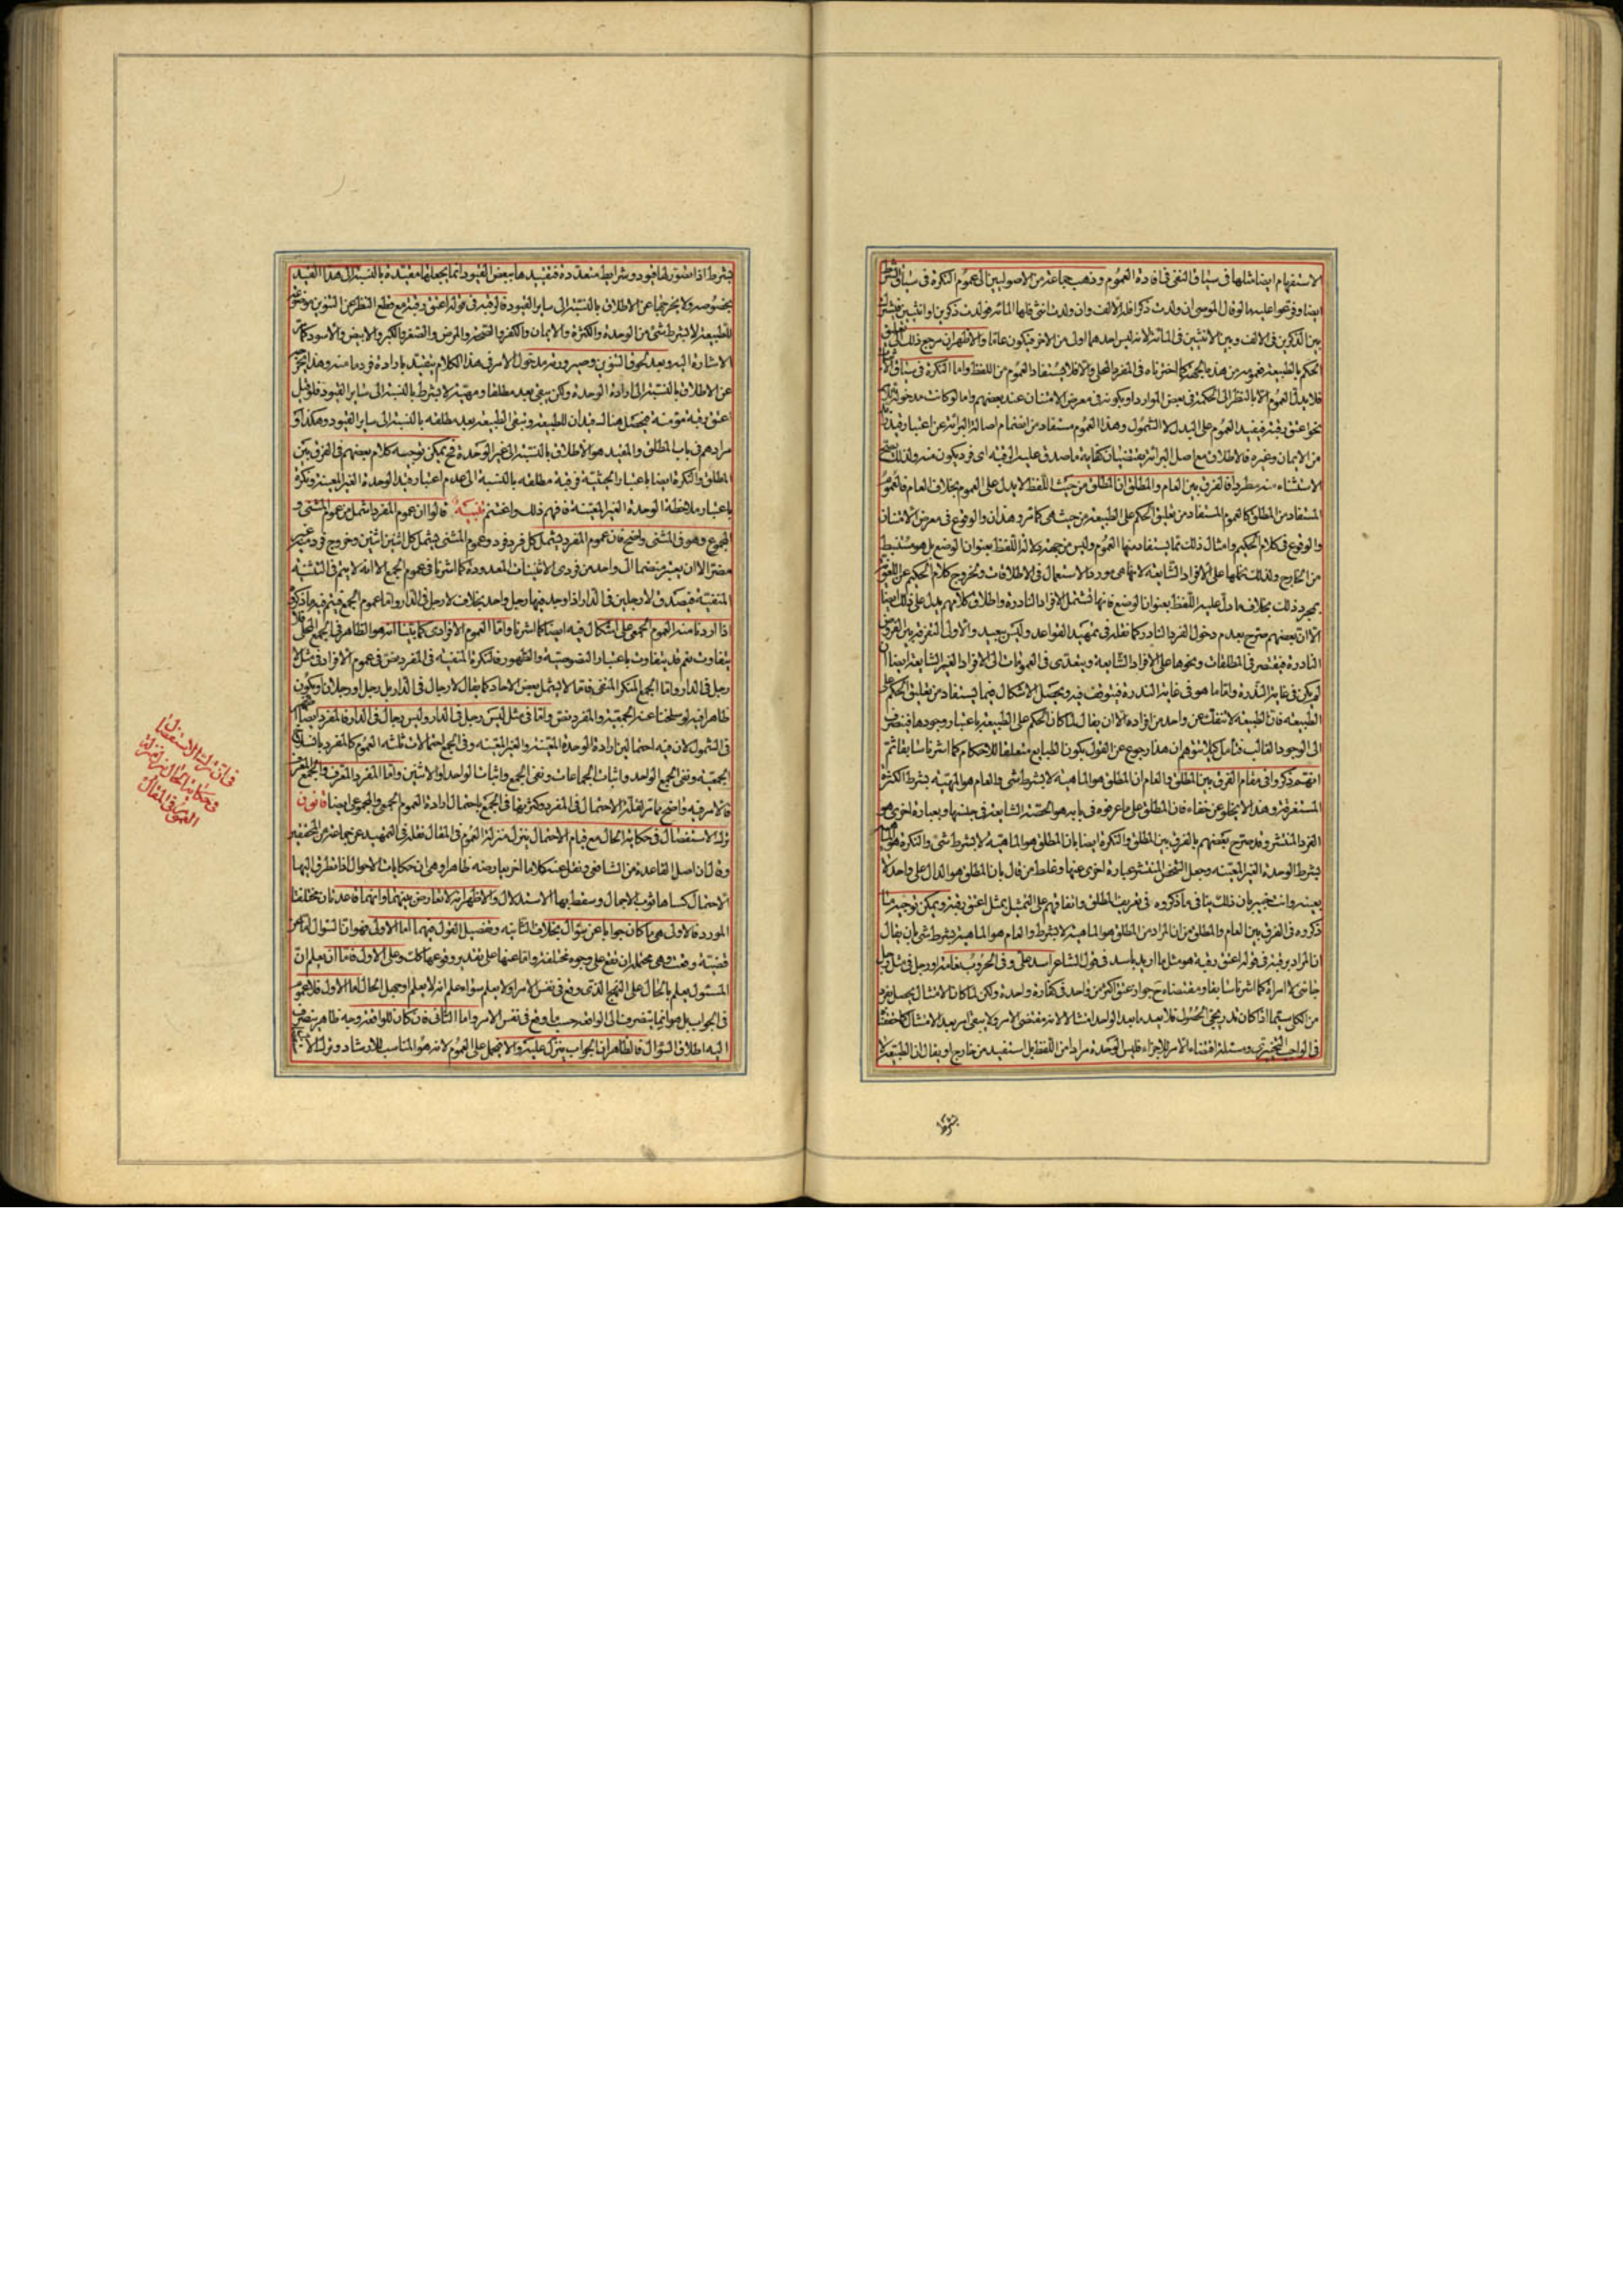 الاستفهام ايضا مثلها فى سياق النفى فى افادة العموم وذهب جماعة من الاصوليين الى عموم النكرة فى سياق الشرط
ايضا وفرعوا عليه ما لو قال الموصى ان ولدت ذكرا فله الالف وان ولدت انثى فلها المائة فولدت ذكرين او انثيين
بين الذكرين فى الالف وبين الانثيين فى المائة لانه ليس احدهما اولى من الاخر فيكون عاما والاظهر ان مرجع ذلك الى تعليق
الحكم بالطبيعة فعمومه من هذه الجهة كما اخترناه فى المفرد المحلى والا فلا يستفاد العموم من اللفظ واما النكرة فى سياق الاثبات
فلا يدل على العموم الا بالنظر الى الحكمة فى بعض الموارد او بكونه فى معرض الامتنان عند بعضهم واما لو كانت مدخولة للامر
نحو اعتق رقبة فيفيد العموم على البدل لا الشمول وهذا العموم مستفاد من انضمام اصالة البرائة عن اعتبار قيد
من الايمان وغيره فالاطلاق مع اصل البرائة يقتضيان كفاية ما صدق عليه الرقبة اى فرد يكون منه ولذلك يصح
الاستثناء منه مطردا فالفرق بين العام والمطلق ان المطلق من حيث اللفظ لا يدل على العموم بخلاف العام فالعموم
المستفاد من المطلق كالعموم المستفاد من تعليق الحكم على الطبيعة من حيث هى كما مر وهذان والوقوع فى معرض الامتنان
والوقوع فى كلام الحكيم وامثال ذلك مما يستفاد منها العموم وليس من جهة دلالة اللفظ بعنوان الوضع بل هو مستنبط
من الخارج ولذلك نحملها على الافراد الشايعة لانها هى مورد الاستعمال فى الاطلاقات وتخرج كلام الحكيم عن اللغو
بمجرد ذلك بخلاف ما دل عليه اللفظ بعنوان الوضع فانها تشتمل الافراد النادرة واطلاق كلامهم يدل على ذلك ايضا
الا ان بعضهم صرح بعدم دخول الفرد النادر كما نقله فى تمهيد القواعد وليس ببعيد والاولى التفرقة بين الفروض
النادرة فيقتصر فى المطلقات ونحوها على الافراد الشايعة ويتعدى فى العمومات الى الافراد الغير الشايعة ايضا ان
لم يكن فى غاية الندرة واما ما هو فى غاية الندرة فيتوقف فيه ويحصل الاشكال فيما يستفاد من تعليق الحكم على
الطبيعة فان الطبيعة لا تنفك عن واحد من افراده الا ان يقال لما كان الحكم على الطبيعة باعتبار وجودها فينصرف
الى الوجود الغالب فتامل كيلا تتوهم ان هذا رجوع عن القول بكون الطبايع متعلقا للاحكام كما اشرنا سابقا ثم
انهم ذكروا فى مقام الفرق بين المطلق والعام ان المطلق هو الماهية لا بشرط شى والعام هو المهية بشرط الكثرة
المستغرقة وهذا لا يخلو عن خفاء فان المطلق على ما عرفوه فى بابه هو الحصة الشايعة فى جنسها وبعبارة اخرى هو
الفرد المنتشر وقد صرح بعضهم بالفرق بين المطلق والنكرة ايضا بان المطلق هو الماهية لا بشرط شى والنكرة هو
بشرط الوحدة الغير المعينة وجعل الشخص المنتشر عبارة اخرى عنها وغلط من قال بان المطلق هو الدال على واحد لا
بعينه وانت خبير بان ذلك ينافى ما ذكروه فى تعريف المطلق واتفاقهم على التمثيل بمثل اعتق رقبة ويمكن توجيه ما
ذكروه فى الفرق بين العام والمطلق من ان المراد من المطلق هو الماهية لا بشرط والعام هو الماهية بشرط شى بان يقال
ان المراد برقبة فى قوله اعتق رقبة هو مثل ما اريد باسد فى قول الشاعر اسد على وفى الحروب نعامة او رجل فى مثل رجل
جائنى لا امراة كما اشرنا سابقا ومقتضاه ح جواز عتق اكثر من واحد فى كفارة واحدة ولكن لما كان الامتثال يحصل بفرد
من الكلى سيما اذا كان تدريجى الحصول فلا يعد ما بعد الواحد امتثالا لانه مقتضى الامر ولا يبقى امر بعد الامتثال كما حققنا
فى الواجب التخييرى ومسئلة اقتضاء الامر للاجزاء فليس الوحدة مرادا من اللفظ بل استفيد من خارج او يقال ان الطبيعة لا
بشرط
بشرط اذا تصور لها قيود وشرايط متعددة فتقييدها ببعض القيود انما يجعلها مقيدة بالنسبة الى هذا القيد
بخصوصه ولا يخرجها عن الاطلاق بالنسبة الى ساير القيود فالرقبة فى قوله اعتق رقبة مع قطع النظر عن التنوين موضوع
للطبيعة لا بشرط شى من الوحدة والكثرة والايمان والكفر والصحة والمرض والصغر والكبر والابيض والاسود كما مر
الاشارة اليه وبعد لحوق التنوين وصيرورته مدخول الامر فى هذا الكلام يتقيد بارادة فرد ما منه وهذا يخرج
عن الاطلاق بالنسبة الى ارادة الوحدة ولكن يبقى بعد مطلقا ومهية لا بشرط بالنسبة الى ساير القيود فلو قيل
اعتق رقبة مؤمنة فيحصل هنالك قيدان للطبيعة وتبقى الطبيعة بعد مطلقة بالنسبة الى ساير القيود وهكذا و
مرادهم فى باب المطلق والمقيد هو الاطلاق بالنسبة الى غير الوحدة فح يمكن توجيه كلام بعضهم فى الفرق بين
المطلق والنكرة ايضا باعتبار الحيثية فرقبة مطلقة بالنسبة الى عدم اعتبار قيد الوحدة الغير المعينة ونكرة
باعتبار ملاحظة الوحدة الغير المعينة فافهم ذلك واغتنم تنبيه قالوا ان عموم المفرد اشمل من عموم المثنى و
المجموع وهو فى المثنى واضح فان عموم المفرد يشمل كل فرد فرد وعموم المثنى يشمل كل اثنين اثنين وخروج فرد منه غير
مضر الا ان يعتبر منضما الى واحد من فردى الاثنينات المعدودة كما اشرنا فى عموم الجمع الا انه لا يتم فى التثنية
المنفية فيصدق لا رجلين فى الدار اذا وجد فيها رجل واحد بخلاف لا رجل فى الدار واما عموم الجمع فيتم فيه ما ذكر
اذا اردنا منه العموم الجمعى على اشكال فيه ايضا كما اشرنا واما العموم الافرادى كما بينا انه هو الظاهر فى الجمع المحلى فلا
يتفاوت نعم قد يتفاوت باعتبار النصوصية والظهور فالنكرة المنفية فى المفرد نص فى عموم الافراد فى مثل لا
رجل فى الدار واما الجمع المنكر المنفى فقد لا يشمل بعض الاحاد كما يقال لا رجال فى الدار بل رجل او رجلان ويكون
ظاهرا فيه لو سلخنا عنه الجمعية والمفرد نص واما فى مثل ليس رجل فى الدار وليس رجال فى الدار فالمفرد ايضا اظهر
فى الشمول لان فيه احتمالين ارادة الوحدة المعينة والغير المعينة وفى الجمع احتمالات ثلثة العموم كالمفرد بانسلاخ
الجمعية ونفى الجميع الواحد واثبات الجماعات ونفى الجمع واثبات الواحد او الاثنين واما المفرد المعرف والجمع المعرف
فالامر فيه واضح مما مر لقلة الاحتمال فى المفرد وكثرتها فى الجمع باحتمال ارادة العموم الجمعى والمجموعى ايضا قانون
ترك الاستفصال فى حكاية الحال مع قيام الاحتمال ينزل منزلة العموم فى المقال نقله فى التمهيد عن جماعة من المحققين
وقال ان اصل القاعدة من الشافعى ونقل عنه كلاما اخر يعارضه ظاهرا وهى ان حكايات الاحوال اذا تطرق اليها
الاحتمال كساها ثوب الاجمال وسقط بها الاستدلال والاظهر انه لا تعارض بينهما وانهما قاعدتان مختلفتا
المورد فالاولى هى ما كان جوابا عن سؤال بخلاف الثانية وتفصيل القول فيهما اما الاولى فهو ان السؤال اما عن
قضية وقعت وهى محتملة ان تقع على وجوه مختلفة واما عنها على تقدير وقوعها كذلك وعلى الاول فاما ان يعلم ان
المسئول يعلم بالحال على النهج الذى وقع فى نفس الامر او لا يعلم سواء علم انه لا يعلم او جهل الحال اما الاول فلا عموم
فى الجواب بل هو انما ينصرف الى الواقعة حسبما وقع فى نفس الامر واما الثانى فان كان للواقعة وجه ظاهر ينصرف
اليه اطلاق السؤال فالظاهر ان الجواب ينزل عليه والا فيحمل على العموم لانه هو المناسب للارشاد وترك الا
فى ان ترك الاستفصال
فى حكاية الحال ينزل منزلة
العموم فى المقال